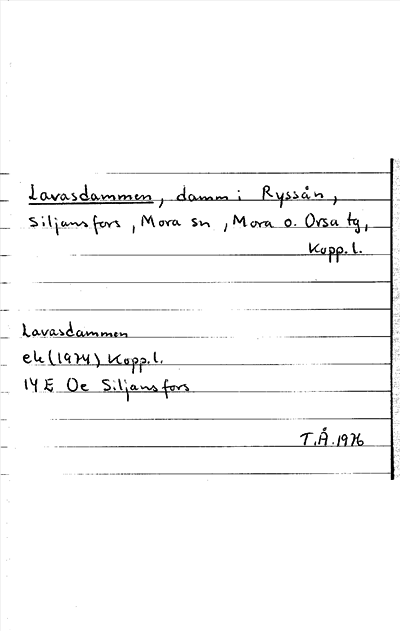 Lavasdammen, damm i Ryssån,
Siljansfors, Mora sn, Mora o. Orsa tg,
Kopp.l.
Lavasdammen
ek (1974) Kopp.l.
14 E Oe Siljansfors
T.Å. 1976